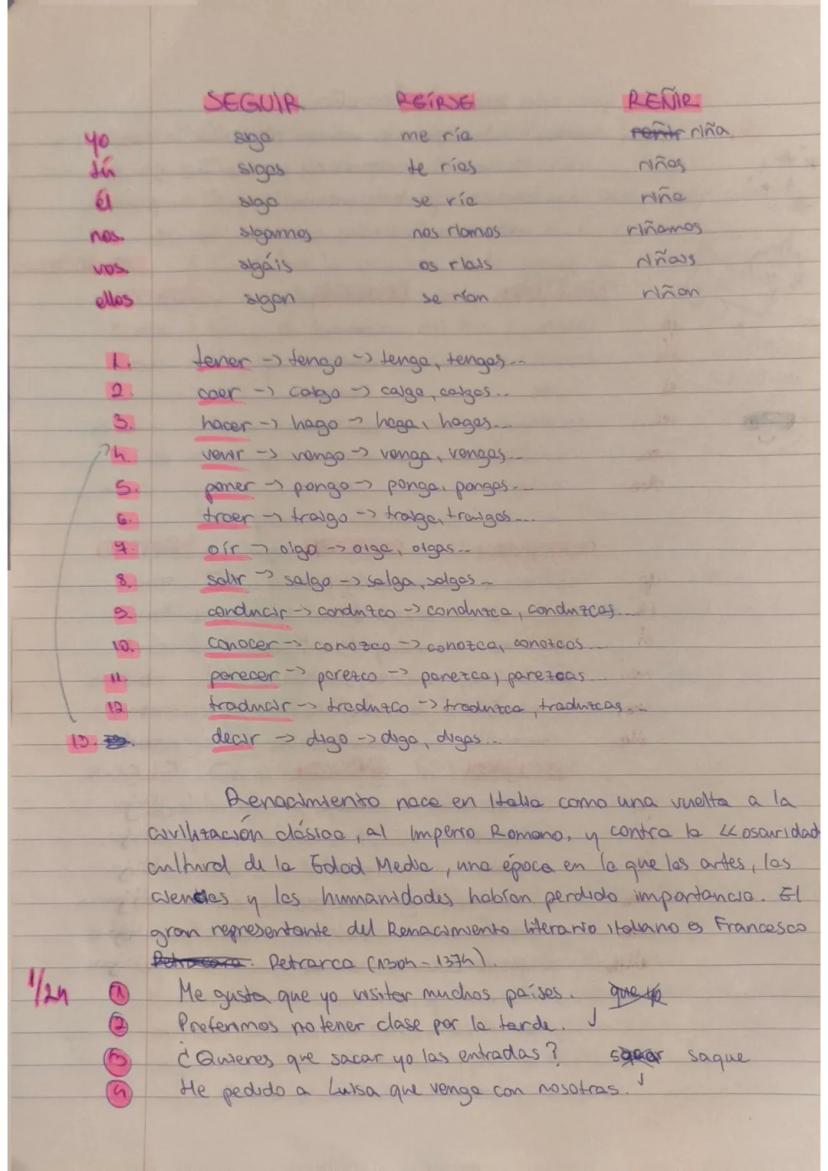 SEGUIR REÍRSE REÑIR
yo siga me ría reñir riña
tú sigas te rías riñas
él siga se ría riña
nos. sigamos nos riamos riñamos
vos. sigáis os riais riñais
ellos sigan se rían riñan
1. tener -> tengo -> tenga, tengas...
2 caer -> caigo -> caiga, caigas...
3. hacer -> hago -> haga, hagas...
4. venir -> vengo -> venga, vengas...
5. poner -> pongo -> ponga, pongas...
6. traer -> traigo -> traiga, traigas...
7. oír -> oigo -> oiga, oigas...
8. salir -> salgo -> salga, salgas...
9. conducir -> conduzco -> conduzca, conduzcas...
10. conocer -> conozco -> conozca, conozcas...
11. parecer -> parezco -> parezca, parezcas...
12 traducir -> traduzco -> traduzca, traduzcas...
13. decir -> digo -> diga, digas...
Renacimiento nace en Italia como una vuelta a la
civilización clásica, al Imperio Romano, y contra la <<oscuridad
cultural de la Edad Media, una época en la que las artes, las
ciencias y las humanidades habían perdido importancia. El
gran representante del Renacimiento literario italiano es Francesco
Petrarca (1304-1374).
1/24 1 Me gusta que yo visitar muchos países. que yo
2 Preferimos no tener clase por la tarde. √
3 ¿Quieres que sacar yo las entradas? sacar saque
4 He pedido a Luisa que venga con nosotras. √